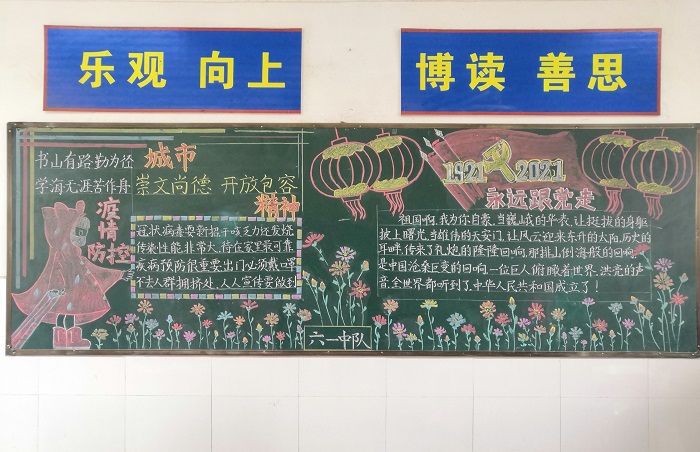 乐观 向上
博读 善思
书山有路勤为径
学海无涯苦作舟
城市
崇文尚德 开放包容
精神
疫情
防控
冠状病毒要新招干咳乏力还发烧
传染性能非常大，待在家里最可靠
疾病预防很重要出门必须戴口罩
不去人群拥挤处，人人宣传要做到
六一中队
1921 2021
永远跟党走
祖国啊，我为你自豪，当巍峨的华表，让挺拔的身躯
披上曙光，当雄伟的天安门，让风云迎来东升的太阳，历史的
耳畔，传来了礼炮的隆隆回响，那排山倒海般的回响
是中国沧桑巨变的回响，一位巨人俯瞰着世界，洪亮的声
音，全世界都听到了，中华人民共和国成立了！